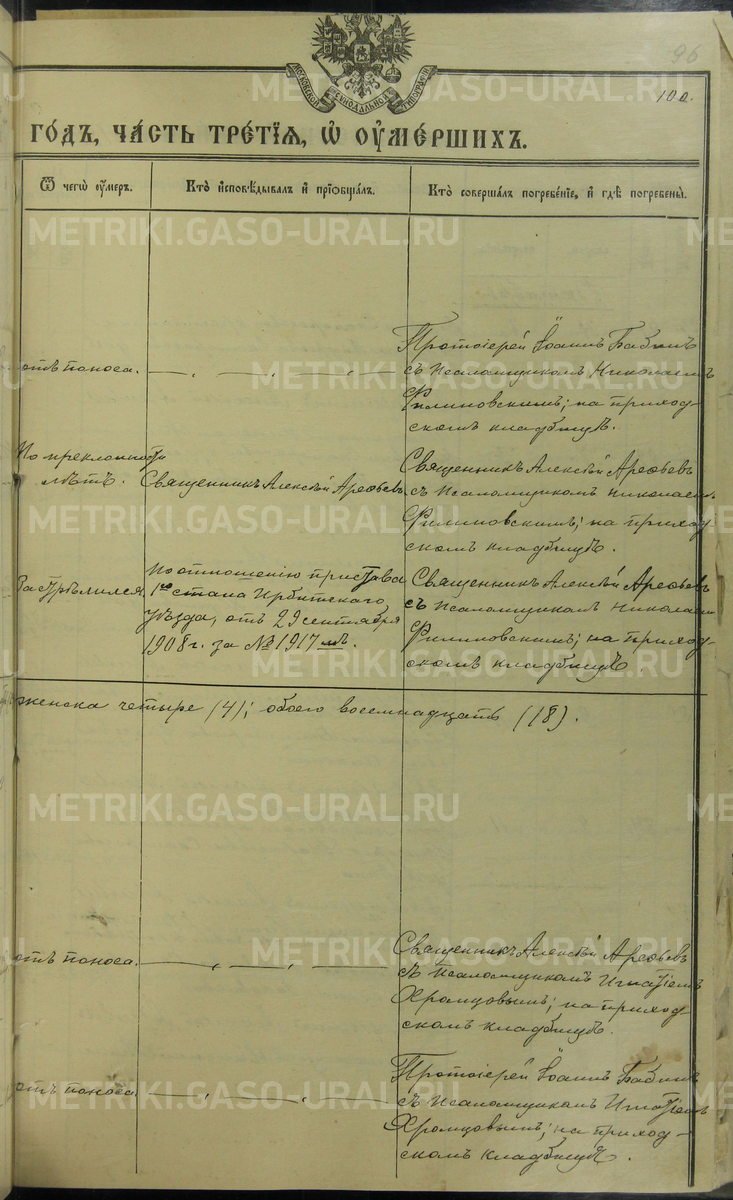 96
100.
МОСКОВСКОЙ СѴНОДАЛЬНОЙ ТИПОГРАФІИ
ГОДЪ, ЧАСТЬ ТРЕТІЯ, Ѡ ОУМЕРШИХЪ.
Ѿ чегѡ оумеръ.
Кто исповѣдывалъ и пріобщалъ.
Кто совершалъ погребеніе, и гдѣ погребены.
отъ поноса.
Протоіерей Іоаннъ Бабинъ
съ Псаломщикомъ Николаемъ
Филиновскимъ; на приход-
скомъ кладбищѣ.
По преклонности
лѣтъ.
Священникъ Алексѣй Арефьевъ
Священникъ Алексѣй Арефьевъ
съ Псаломщикомъ Николаемъ
Филиновскимъ; на приход-
скомъ кладбищѣ.
Застрѣлился
По отношенію пристава
1го стана Ирбитскаго
уѣзда, отъ 29 сентября
1908 г. за № 1917 мъ.
Священникъ Алексѣй Арефьевъ
съ Псаломщикомъ Николаемъ
Филиновскимъ; на приход-
скомъ кладбищѣ.
женска четыре (4); обоего восемнадцать (18).
отъ поноса.
Священникъ Алексѣй Арефьевъ
съ Псаломщикомъ Игнатіемъ
Хромцовымъ; на приход-
скомъ кладбищѣ.
отъ поноса
Протоіерей Іоаннъ Бабинъ
съ Псаломщикомъ Игнатіемъ
Хромцовымъ; на приход-
скомъ кладбищѣ.
METRIKI.GASO-URAL.RU